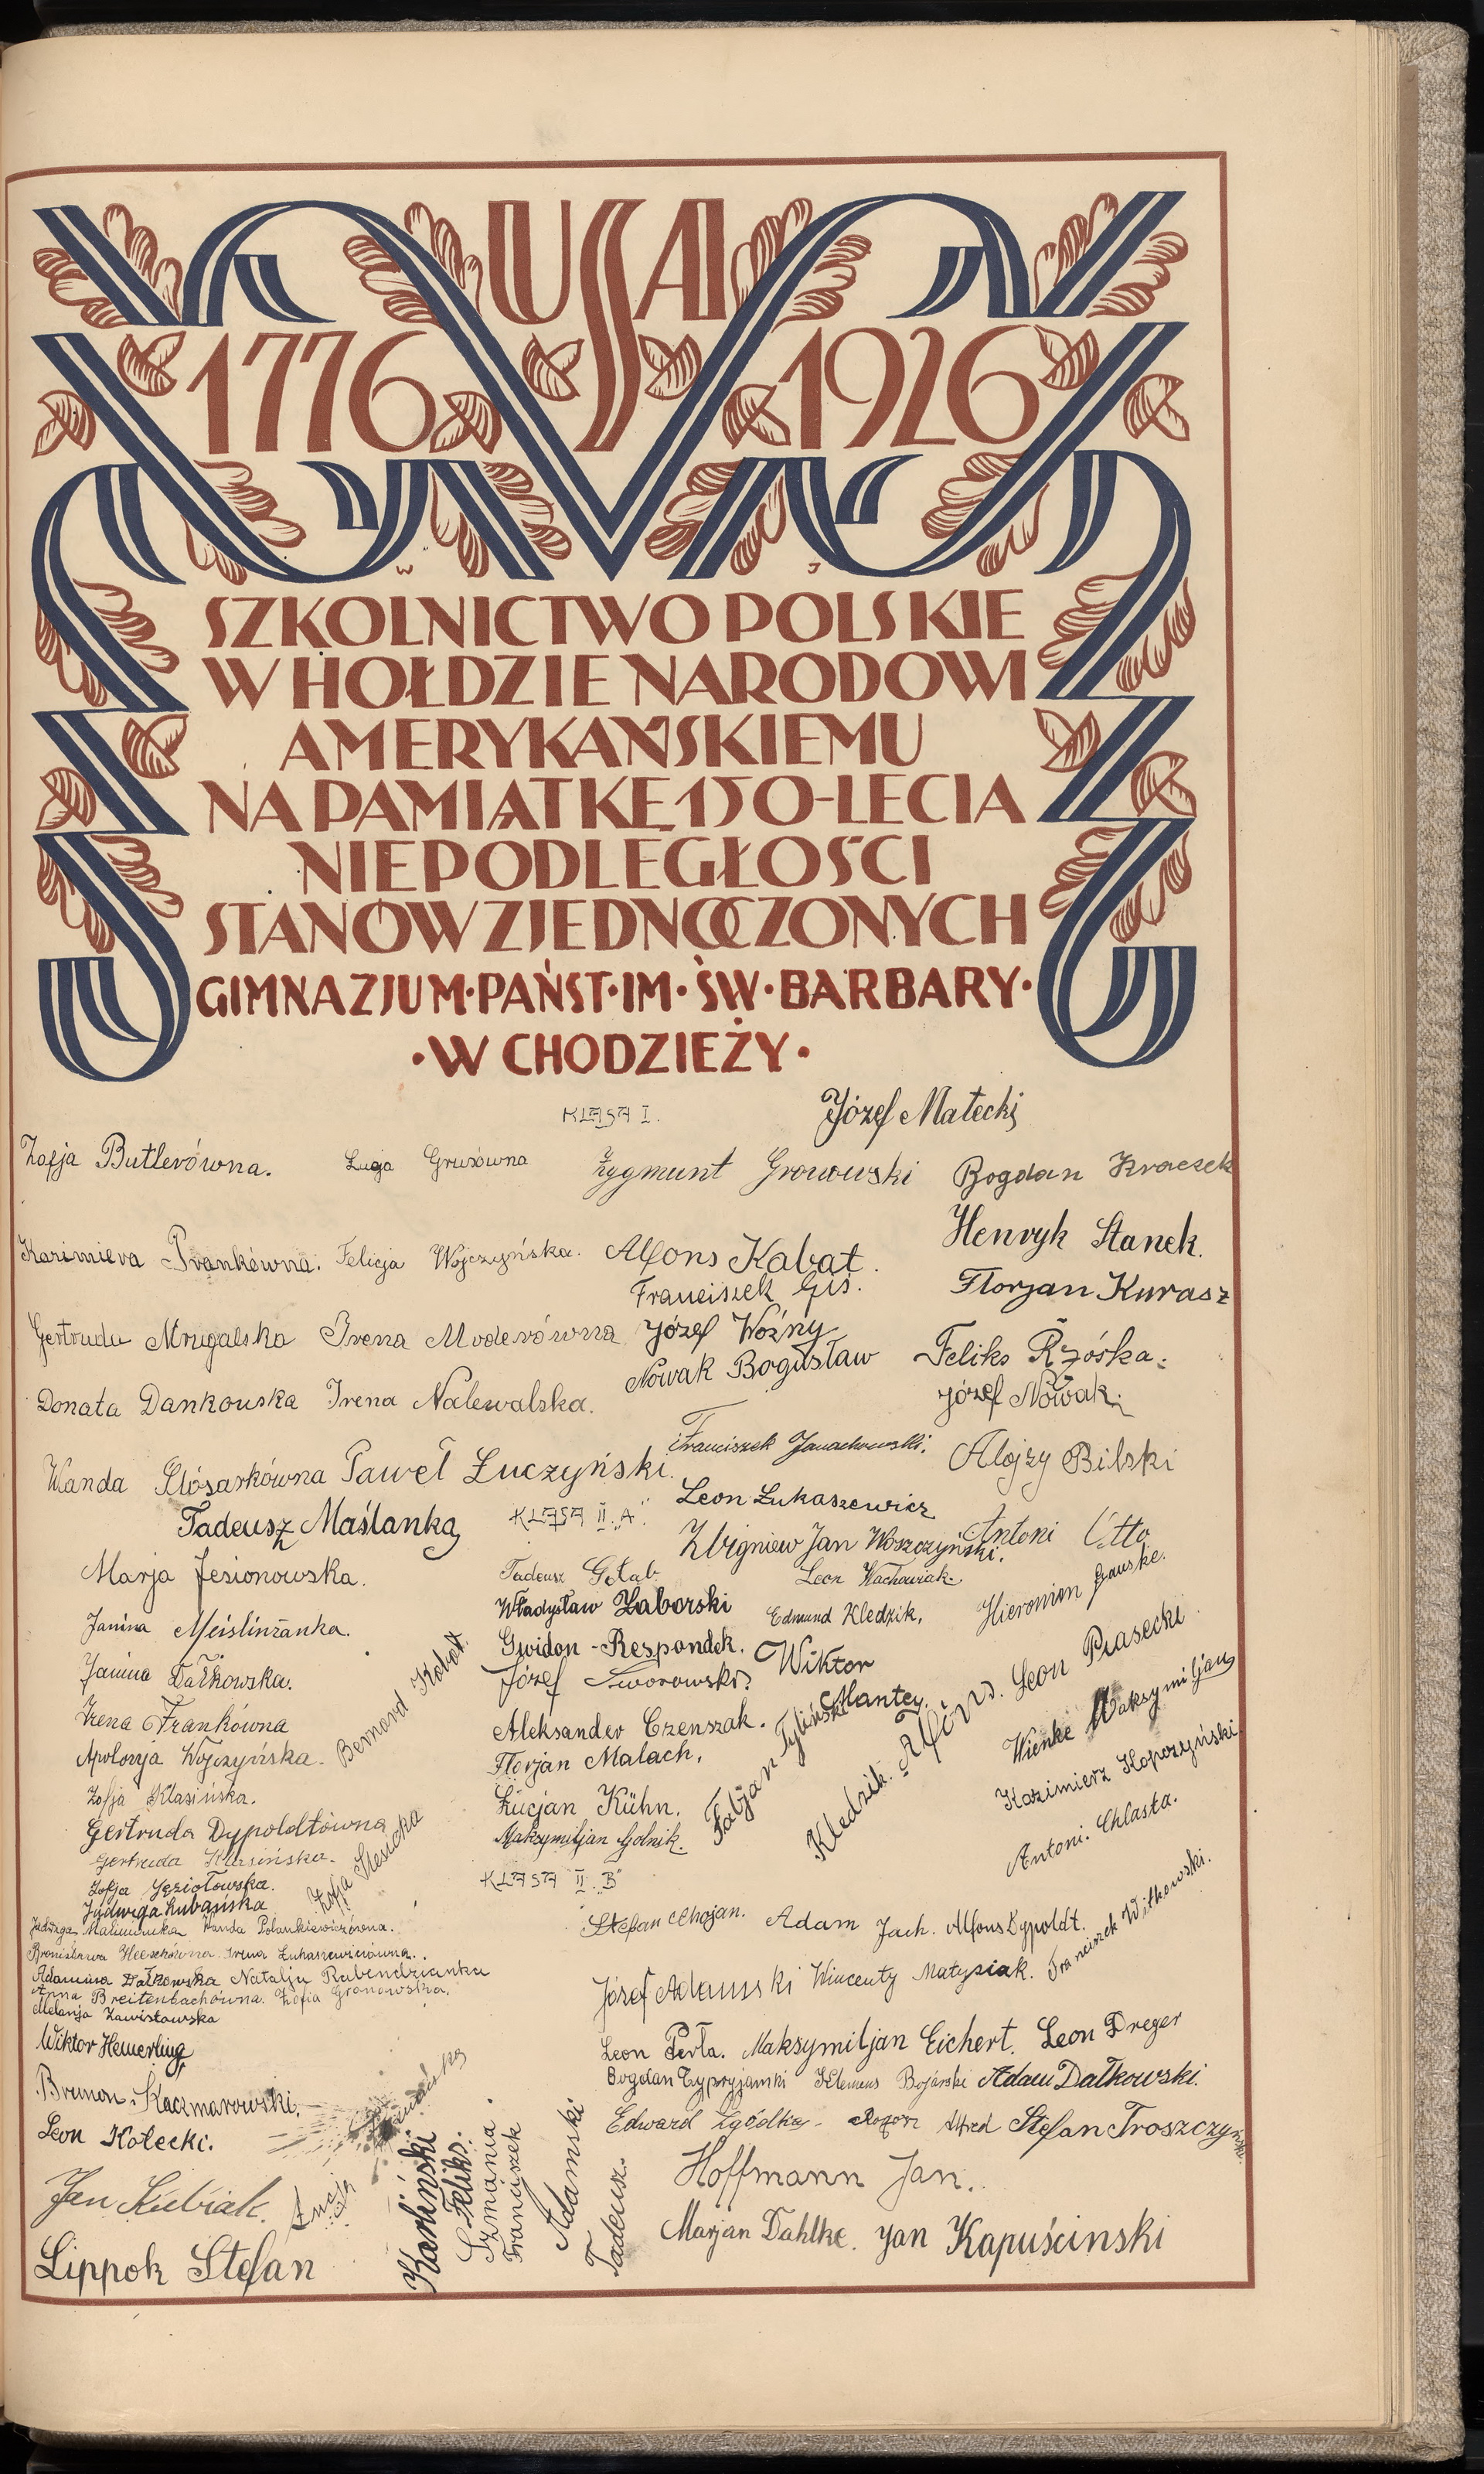 USA
1776 1926
W J
SZKOLNICTWO POLSKIE
W HOŁDZIE NARODOWI
AMERYKAŃSKIEMU
NA PAMIĄTKĘ 150-LECIA
NIEPODLEGŁOŚCI
STANÓW ZJEDNOCZONYCH
GIMNAZJUM·PAŃST·IM·ŚW·BARBARY·
·W CHODZIEŻY·
KLASA I.
Józef Małecki
Zofja Butlerówna.
Łucja
Zygmunt Gronowski
Bogdan Kraczek
Henryk Stanek.
Kazimiera Frankówna.
Felicja Wojczyńska.
Alfons Kabat.
Franciszek Giś.
Florjan Kurasz
Gertruda Mrugalska
Irena Moderówna
Józef Woźny
Nowak Bogusław
Feliks Rzóska.
Józef Nowak.
Donata Dankowska
Irena Nalewalska.
Franciszek
Alojzy Bilski
Wanda Ślósarkówna
Paweł Łuczyński.
Leon Łukaszewicz
Tadeusz Maślanka
KLASA II „A".
Zbigniew Jan Woszczyński.
Antoni Otto
Marja Jesionowska.
Tadeusz Gołąb
Leon Wachowiak.
Władysław Zaborski
Edmund Kledzik.
Hieronim Gauske.
Janina Meislinżanka.
Gwidon-Respondek.
Janina Dałkowska.
Józef Sworowski.
Wiktor Mantey.
Bernard Kabat.
Irena Frankówna
Aleksander Czenszak.
Fabjan Tyliński
Kledzik Alfons.
Leon Piasecki
Wienke Maksymiljan
Apolonja Wojczyńska.
Florjan Malach.
Zofja Klasińska.
Łucjan Kühn.
Kazimierz Kopczyński
Gertruda Dypoldtówna
Maksymiljan Golnik.
Antoni Chlasta.
Gertruda Klasińska.
Zofja Jęziołowska.
Zofja
KLASA II „B"
Jadwiga Łubańska
Jadwiga Wanda Polankiewiczówna.
Stefan Chojan.
Adam Jach.
Alfons Dypoldt.
Franciszek Witkowski.
Bronisława Irena Łukaszewiczówna.
Adamina Dałkowska Natalja Rabendzianka
Józef Adamski
Wincenty Matysiak.
Anna Breitenbachówna. Zofia Gronowska.
Melanja Zawistowska
Wiktor Hemerling
Leon Perła.
Maksymiljan Eichert.
Leon Dreger
Bogdan
Klemens Bojarski
Adam Dałkowski.
Brunon Kaczmarowski.
Leon Kotecki.
Edward Zgódka.
Alfred
Stefan Troszczyński.
Jan Kubiak.
Łucja
Karliński Feliks.
Szmania Franciszek
Adamski Tadeusz.
Hoffmann Jan.
Lippok Stefan
Marjan Dahlke.
Jan Kapuścinski